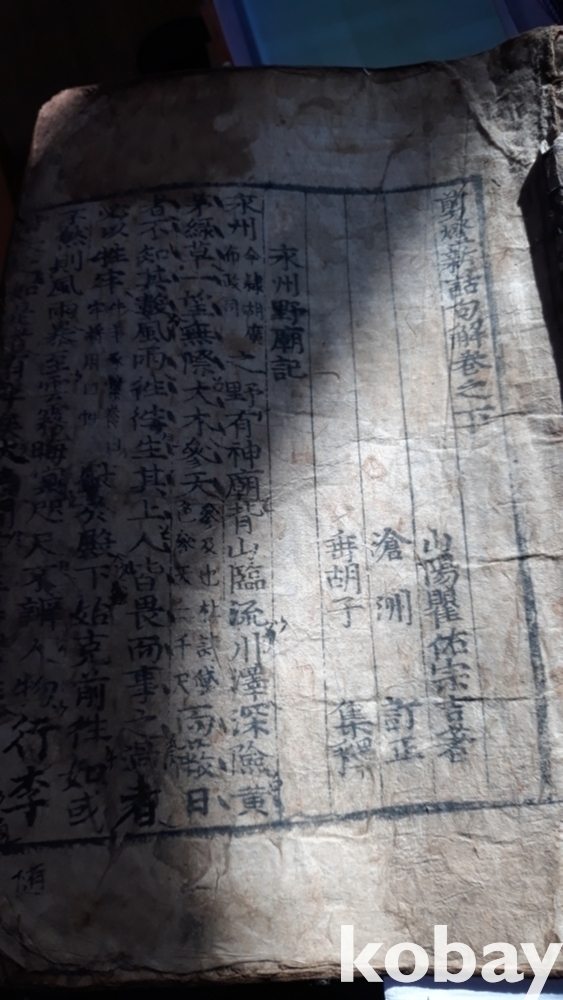 剪燈新話句解卷之下
山陽瞿佑宗吉著
滄洲 訂正
垂胡子 集釋
永州野廟記
永州今隸胡廣布政司之野有神廟背山臨流川澤深險黃
茅綠草一望無際大木參天參及也杜詩黛色參天二千尺而蔽日
者不知其數風雨往往生其上人皆畏而事之過者
必以牲牢於殿下始克前往如或
不然則風雨暴至雲霧晦冥咫尺不辨人物行李
隨
kobay